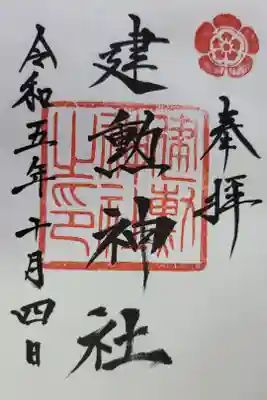 奉拝
建勲神社
建勲神社之印
令和五年十月四日